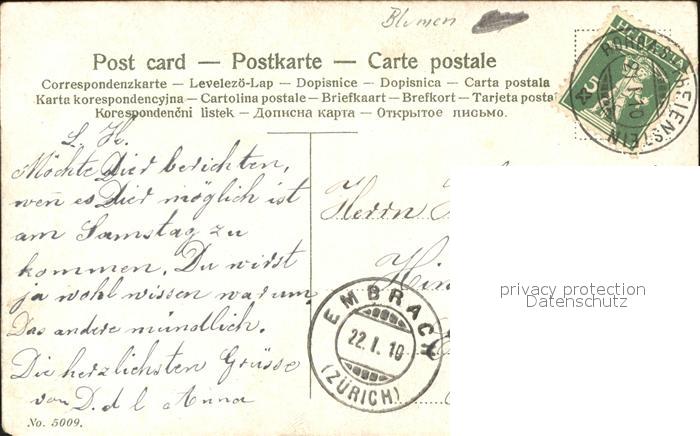 Blumen
Post card — Postkarte — Carte postale
Correspondenzkarte — Levelező-Lap — Dopisnice — Dopisnica — Carta postala
Karta korespondencyjna — Cartolina postale — Briefkaart — Brefkort — Tarjeta posta
Korespondenční listek — Дописна карта — Открытое письмо.
HELVETIA
5
L. H.
Möchte Dier berichten,
wen̄ es Dier möglich ist
am Samstag zu
kommen. Du wirst
ja wohl wissen warum.
Das andere mündlich.
Die herzlichsten Grüsse
von D. d l Anna
Herrn
Hin
EMBRACH
22.I.10
(ZÜRICH)
privacy protection
Datenschutz
No. 5009.